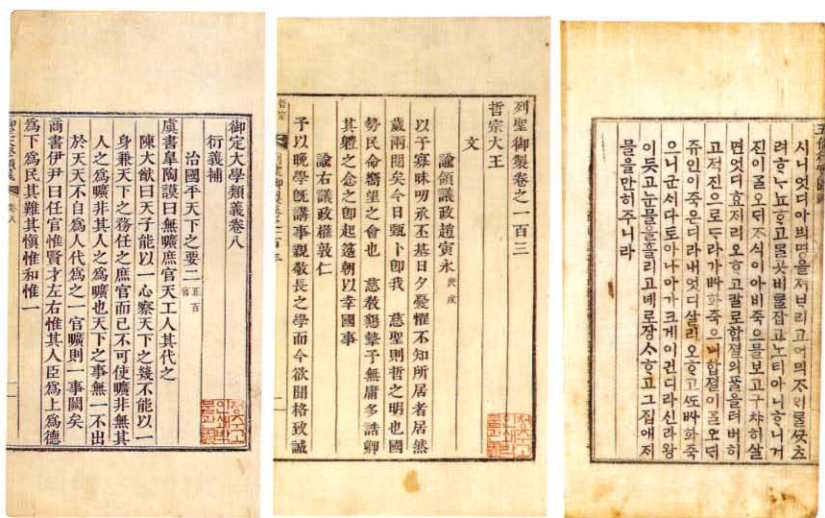 御定大學類義卷八
衍義補
治國平天下之要二 正百官
虞書皐陶謨曰無曠庶官天工人其代之
陳大猷曰天子能以一心察天下之幾不能以一
身兼天下之務任之庶官而已不可使曠非無其
人之為曠非其人之為曠也天下之事無一不出
於天天不自為人代為之一官曠則一事闕矣
商書伊尹曰任官惟賢才左右惟其人臣為上為德
為下為民其難其慎惟和惟一
청주고
인쇄박
列聖御製卷之一百三
哲宗大王
文
諭領議政趙寅永 庚戌
以予寡昧叨承丕基日夕憂懼不知所居者居然
歲兩閱矣今日甌卜卽我 慈聖則哲之明也國
勢民命嚮望之會也 慈教懇摯予無庸多誥卿
其軆之念之卽起筵朝以幸國事
諭右議政權敦仁
予以晩學旣講事親敬長之學而今欲開格致誠
청주고
인쇄박
시니엇디아븨명을져ᄇᆞ리고어믜ᄌᆞ의ᄅᆞᆯ
려ᄒᆞᄂᆞ뇨ᄒᆞ고ᄆᆞᆯ곳비ᄅᆞᆯ잡고노티아니ᄒᆞ니거
진이ᄀᆞᆯ오ᄃᆡᄌᆞ식이아비죽으믈보고구챠히살
면엇디효재리오ᄒᆞ고팔로합졀의ᄑᆞᆯ을텨버히
고적진으로ᄃᆞ라가ᄡᅡ화죽으니합졀이ᄀᆞᆯ오ᄃᆡ
쥬인이죽은디라내엇디살리오ᄒᆞ고ᄯᅩᄡᅡ화죽
으니군시다토아나아가크게이긴디라신라왕
이듯고눈믈을흘리고녜로장ᄉᆞᄒᆞ고그집에ᄌᆡ
믈을만히주니라